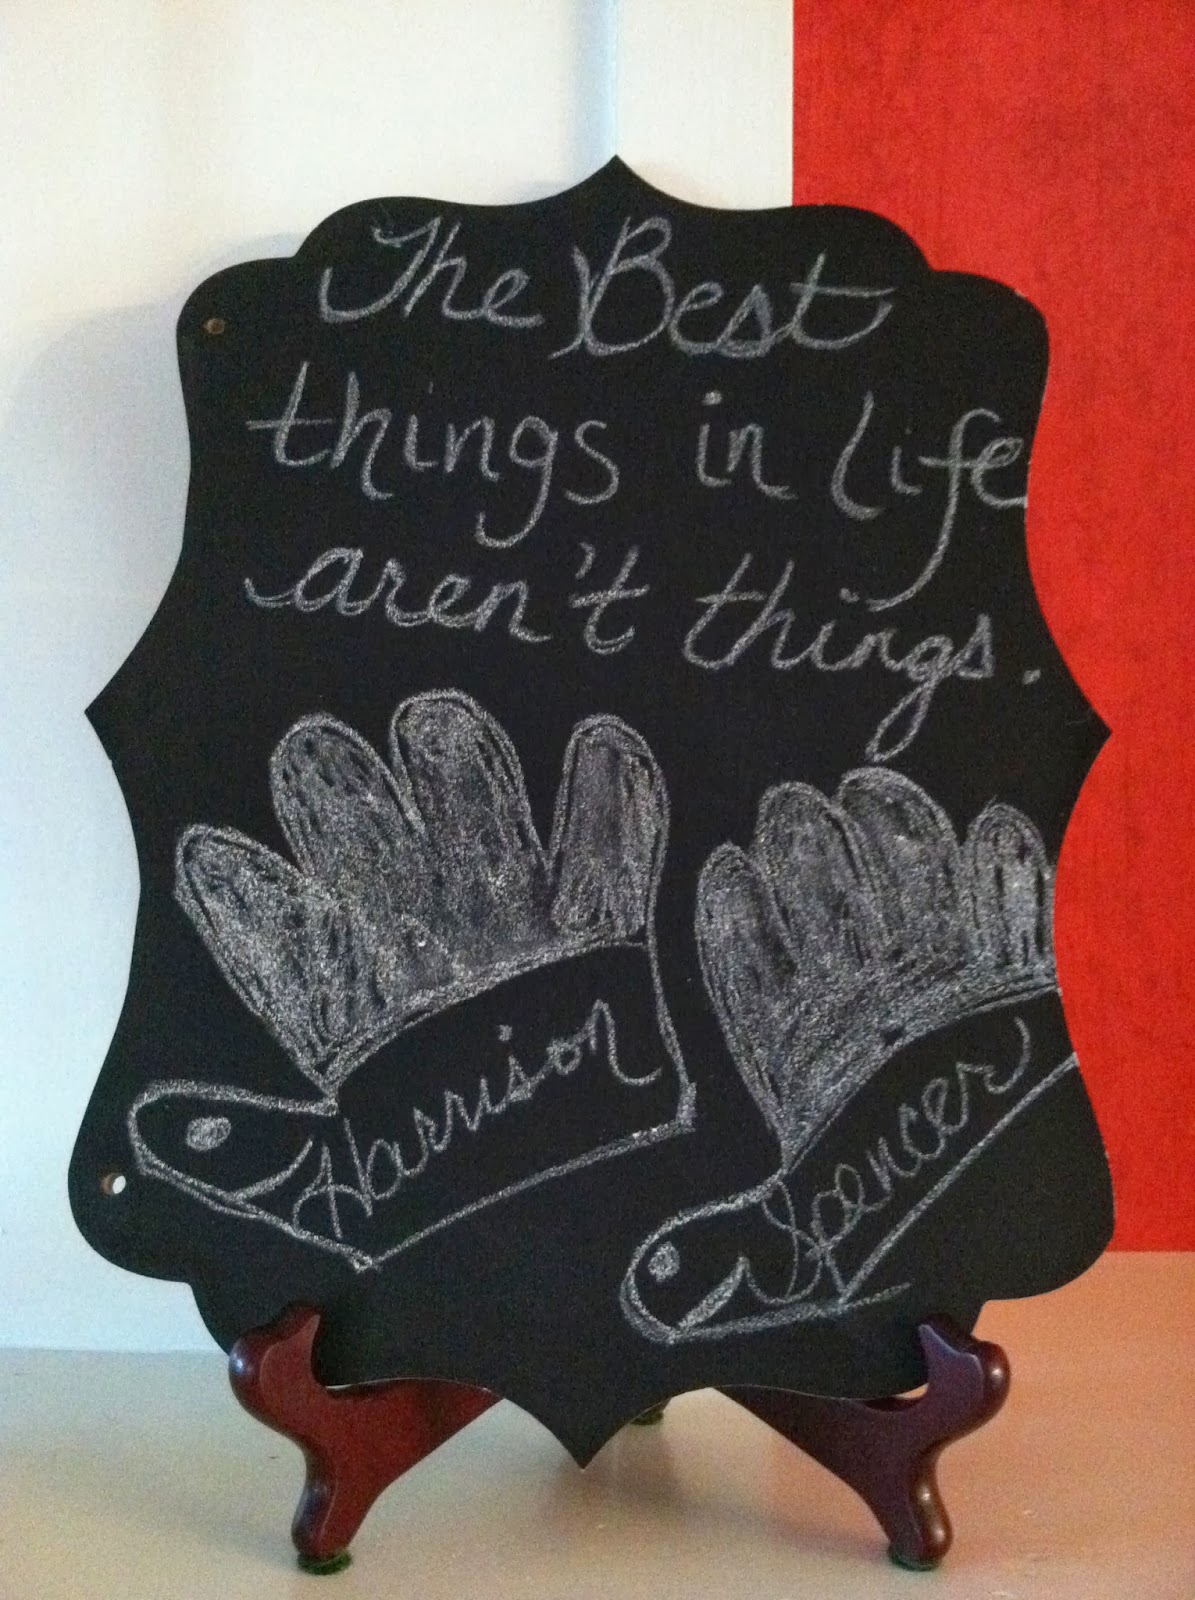 The Best
things in life
aren't things.
Harrison
Spencer